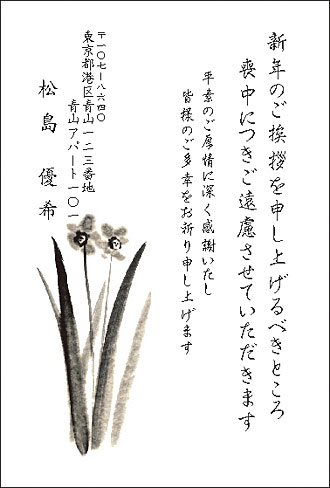 新年のご挨拶を申し上げるべきところ
喪中につきご遠慮させていただきます
平素のご厚情に深く感謝いたし
皆様のご多幸をお祈り申し上げます
〒一〇七ー八六四〇
東京都港区青山一ー二三番地
青山アパート一〇一
松島　優希